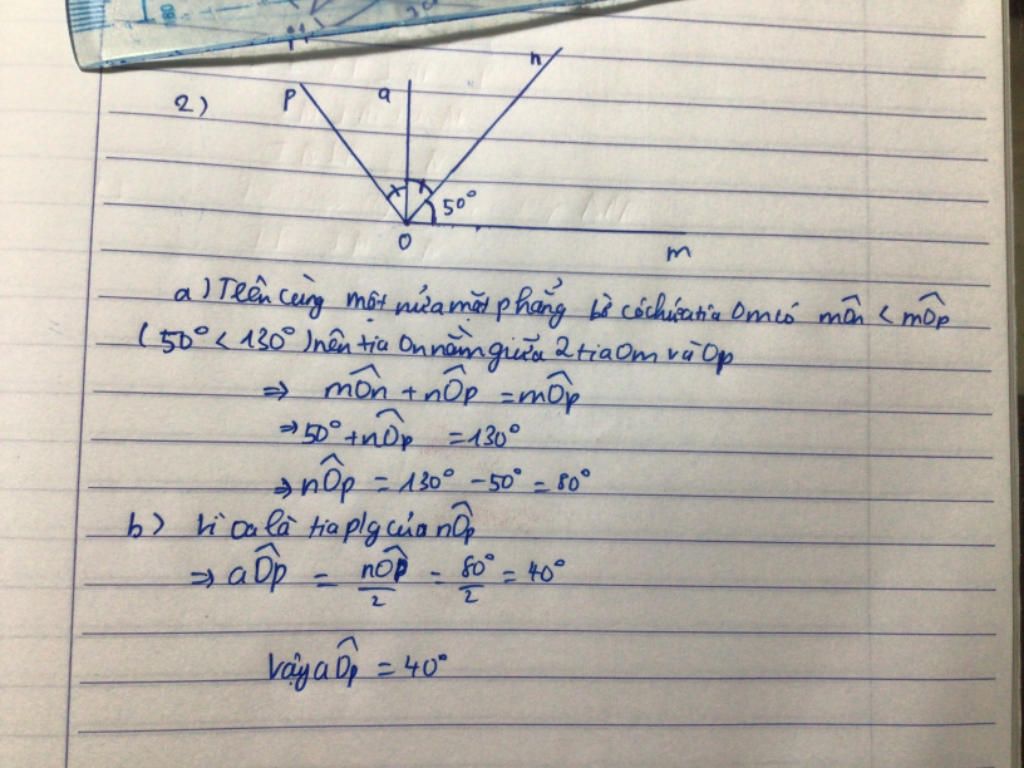 2)
p
a
n
50°
O
m
a) Trên cùng một nửa mặt phẳng bờ có chứa tia Om có mÔn < mÔp
(50° < 130°) nên tia On nằm giữa 2 tia Om và Op
⇒ mÔn + nÔp = mÔp
⇒ 50° + nÔp = 130°
⇒ nÔp = 130° - 50° = 80°
b) Vì Oa là tia p/g của nÔp
⇒ aÔp = nÔp/2 = 80°/2 = 40°
Vậy aÔp = 40°